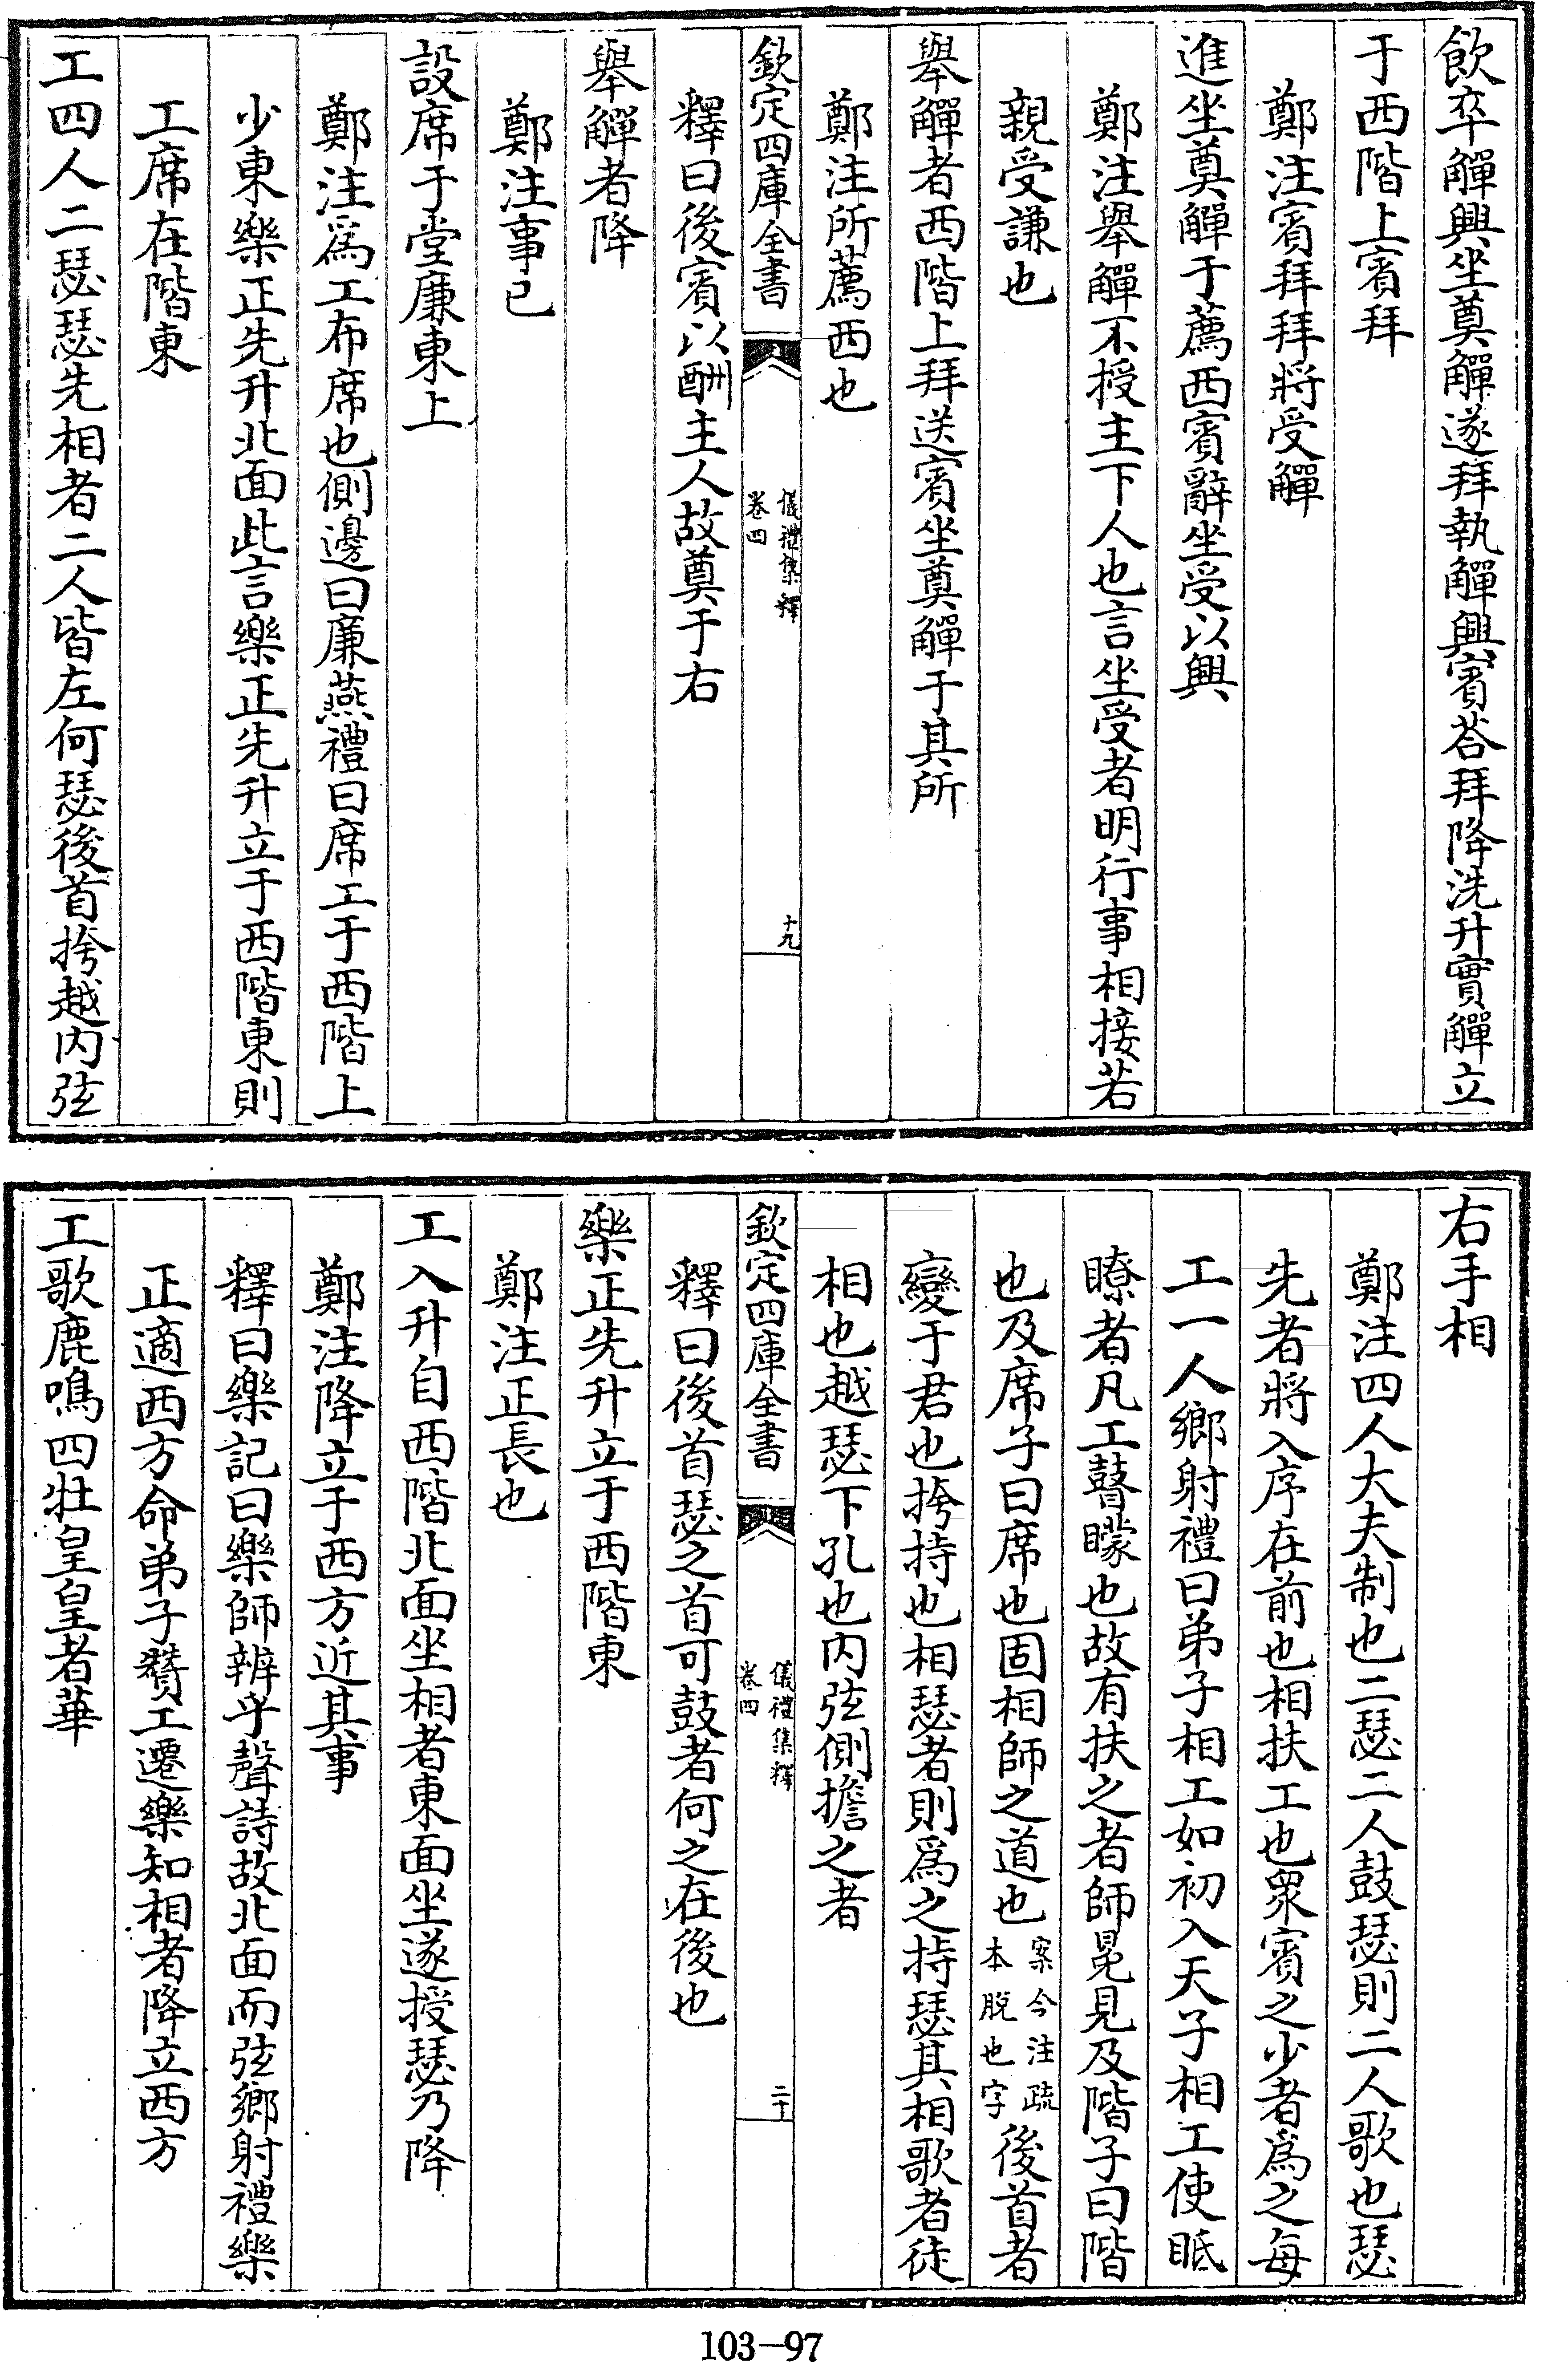 飲卒觶興坐奠觶遂拜執觶興賓荅拜降洗升實觶立
于西階上賓拜
鄭注賓拜拜將受觶
進坐奠觶于薦西賓辭坐受以興
鄭注舉觶不授主下人也言坐受者明行事相接若
親受謙也
舉觶者西階上拜送賓坐奠觶于其所
鄭注所薦西也
欽定四庫全書
儀禮集釋
卷四
十九
釋曰後賓以酬主人故奠于右
舉觶者降
鄭注事已
設席于堂廉東上
鄭注為工布席也側邊曰廉燕禮曰席工于西階上
少東樂正先升北面此言樂正先升立于西階東則
工席在階東
工四人二瑟瑟先相者二人皆左何瑟後首挎越内弦
右手相
鄭注四人大夫制也二瑟二人鼓瑟則二人歌也瑟
先者將入序在前也相扶工也衆賓之少者爲之每
工一人鄉射禮曰弟子相工如初入天子相工使眡
瞭者凡工瞽矇也故有扶之者師冕見及階子曰階
也及席子曰席也固相師之道也案今注疏本脫也字後首者
變于君也挎持也相瑟者則爲之持瑟其相歌者徒
相也越瑟下孔也内弦側擔之者
欽定四庫全書
儀禮集釋
卷四
二十
釋曰後首瑟之首可鼓者何之在後也
樂正先升立于西階東
鄭注正長也
工入升自西階北面坐相者東面坐遂授瑟乃降
鄭注降立于西方近其事
釋曰樂記曰樂師辨乎聲詩故北面而弦鄉射禮樂
正適西方命弟子贊工遷樂知相者降立西方
工歌鹿鳴四牡皇皇者華
103-97